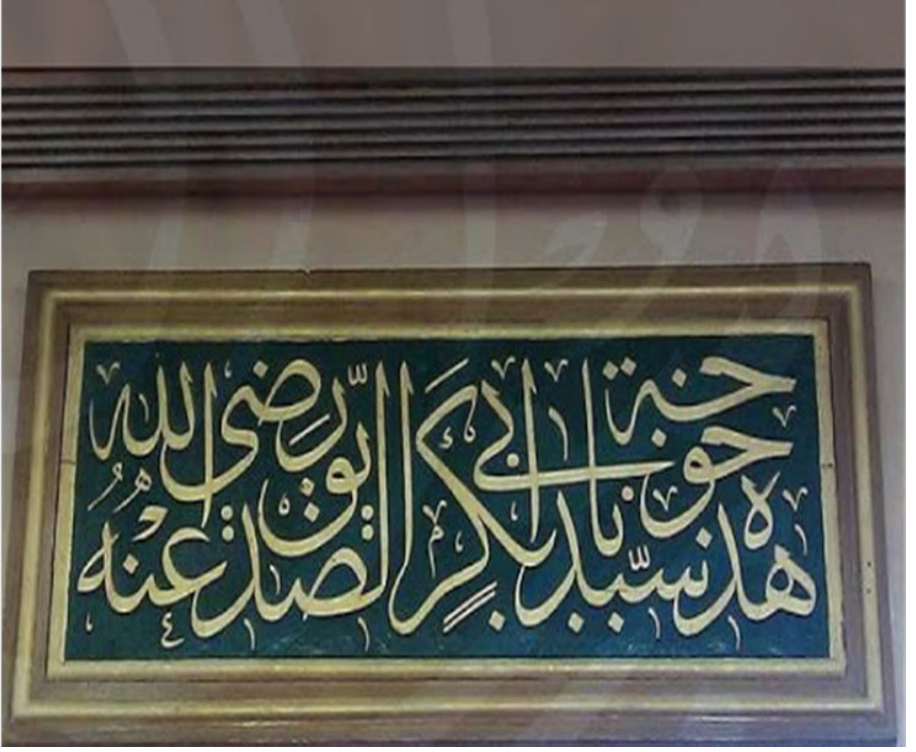 هذه خوخة سيدنا أبي بكر الصديق رضى الله عنه